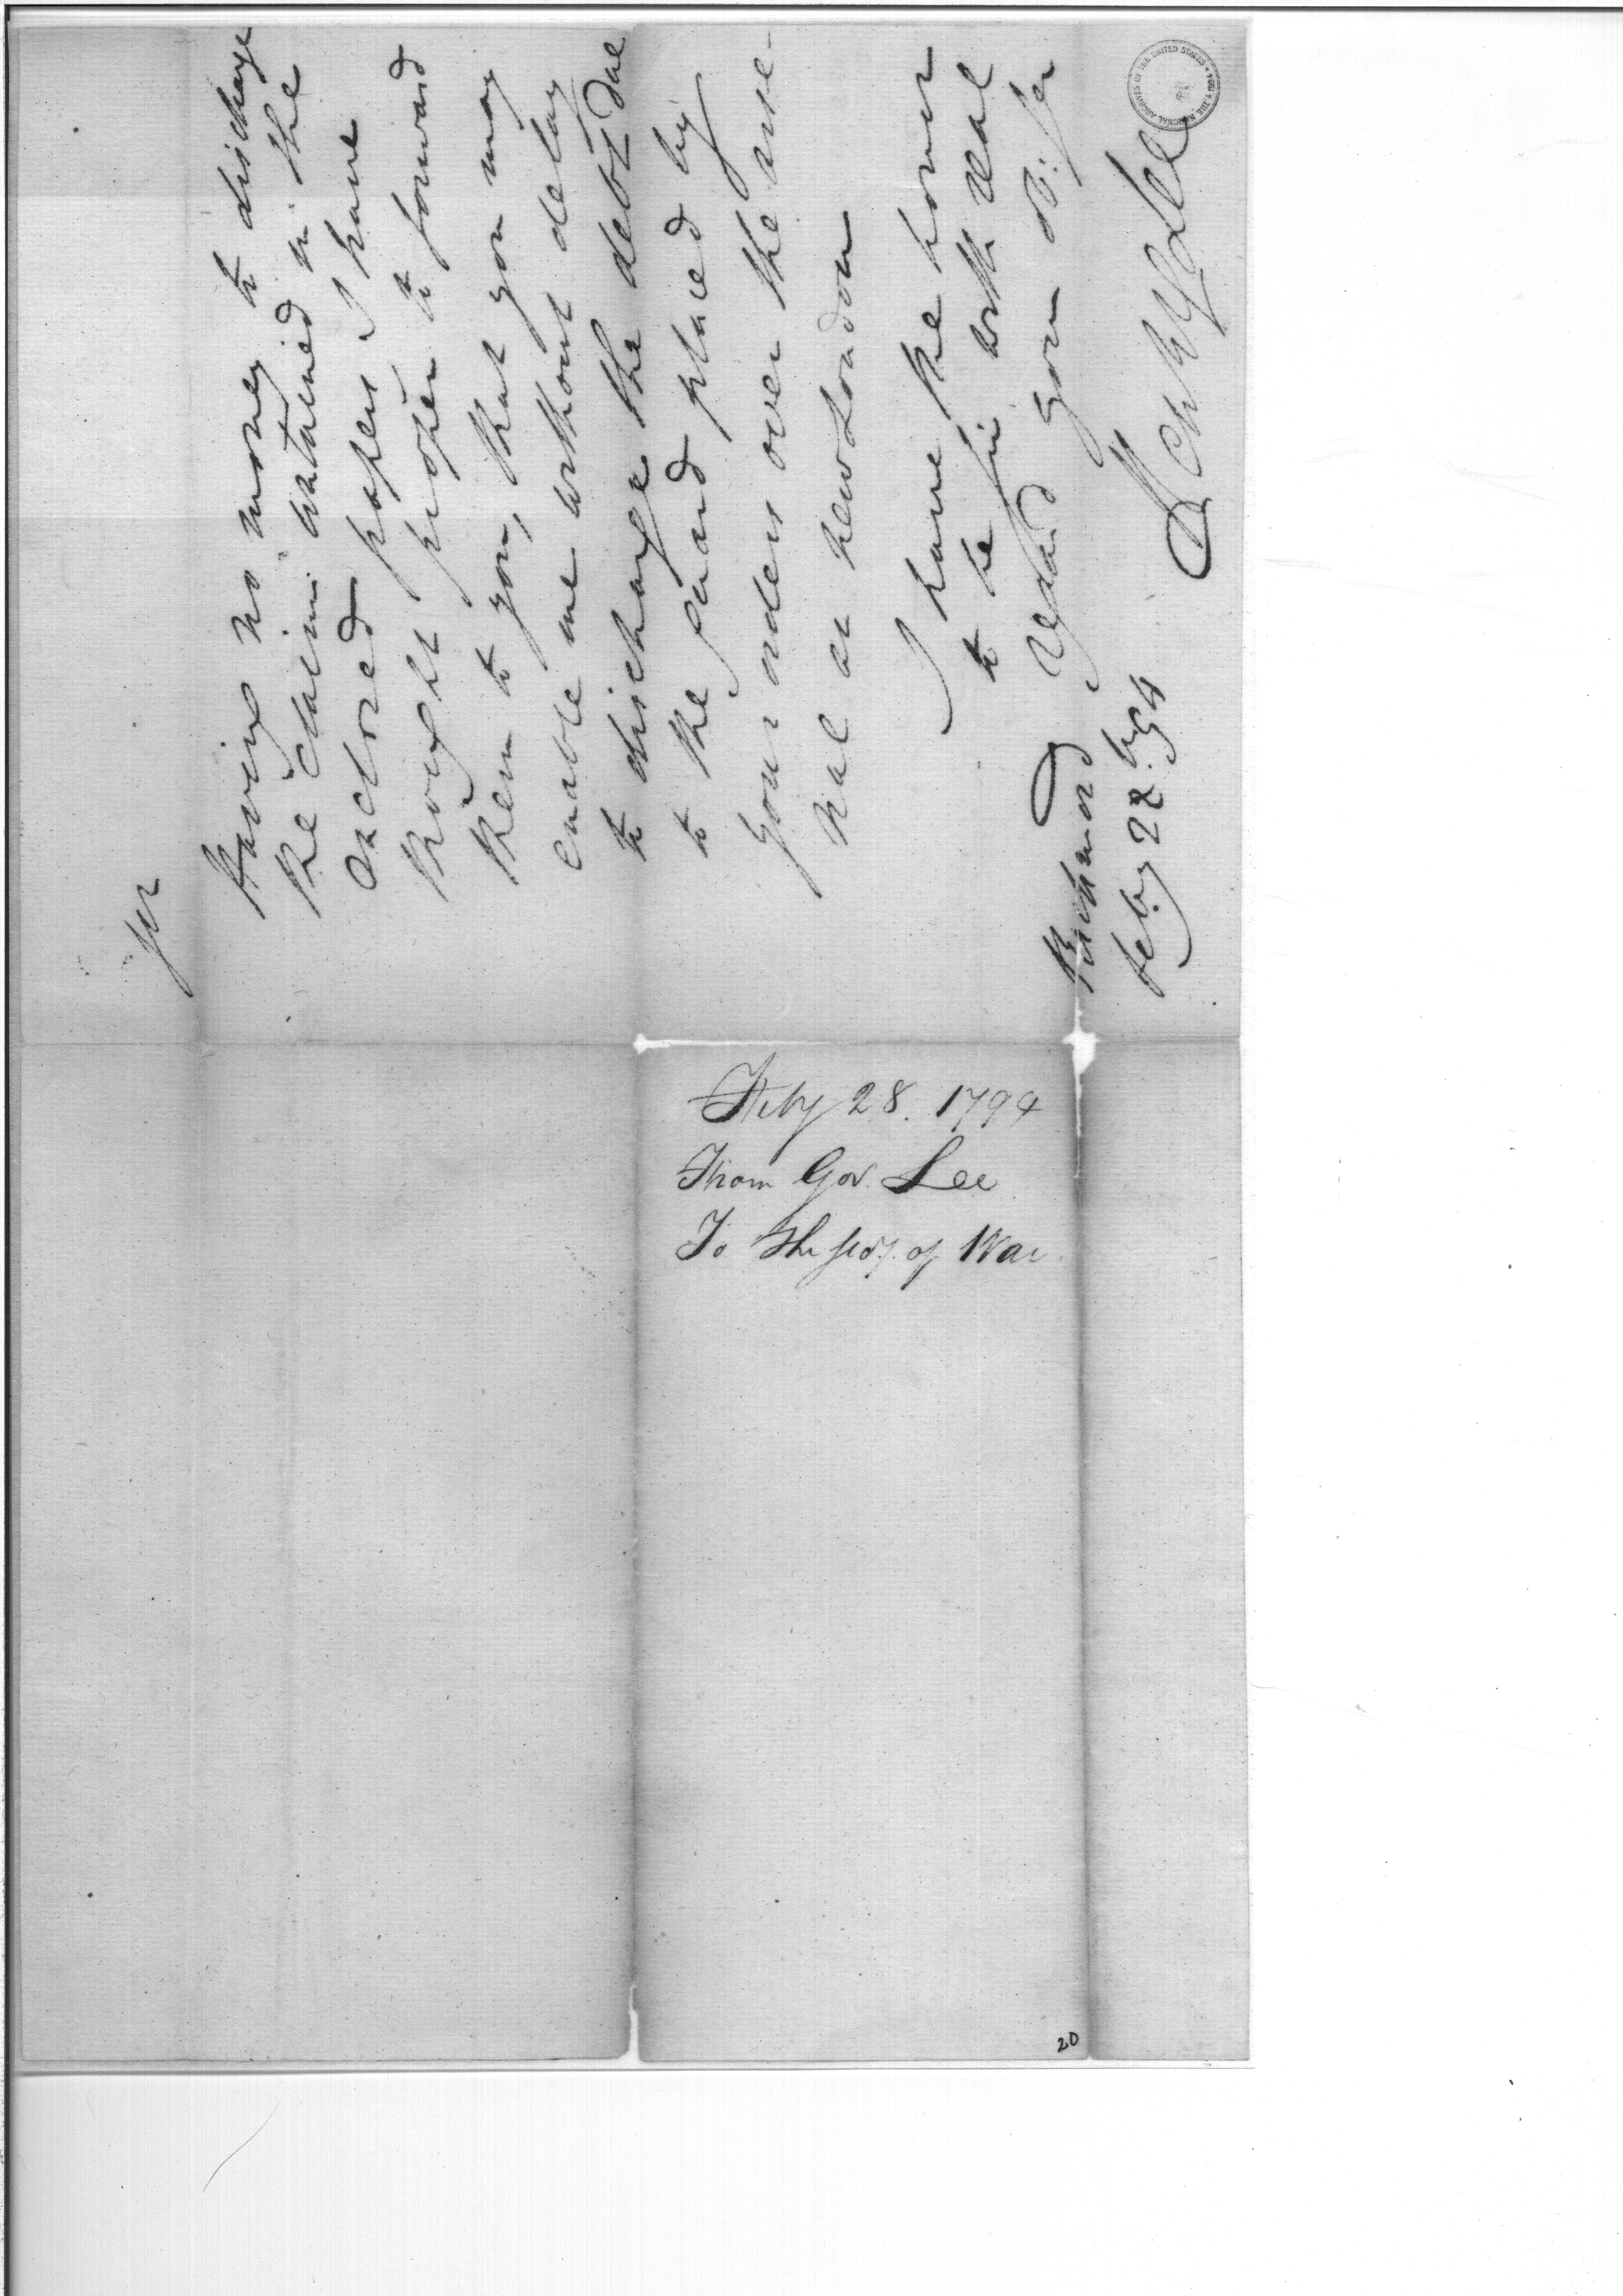 Sir
Having no money to discharge
the claim contained in the
enclosed papers I have
thought proper to forward
them to you, that you may
enable me without delay
to discharge the debt due
to the guard placed by
your orders over the arse-
nal at New London
I have the honor
to be sir with real
regard your ob. ser
Henry Lee
Richmond
feby 28th 94
THE NATIONAL ARCHIVES OF THE UNITED STATES
Feby 28. 1794
From Gov. Lee
To The Secy. of War
20